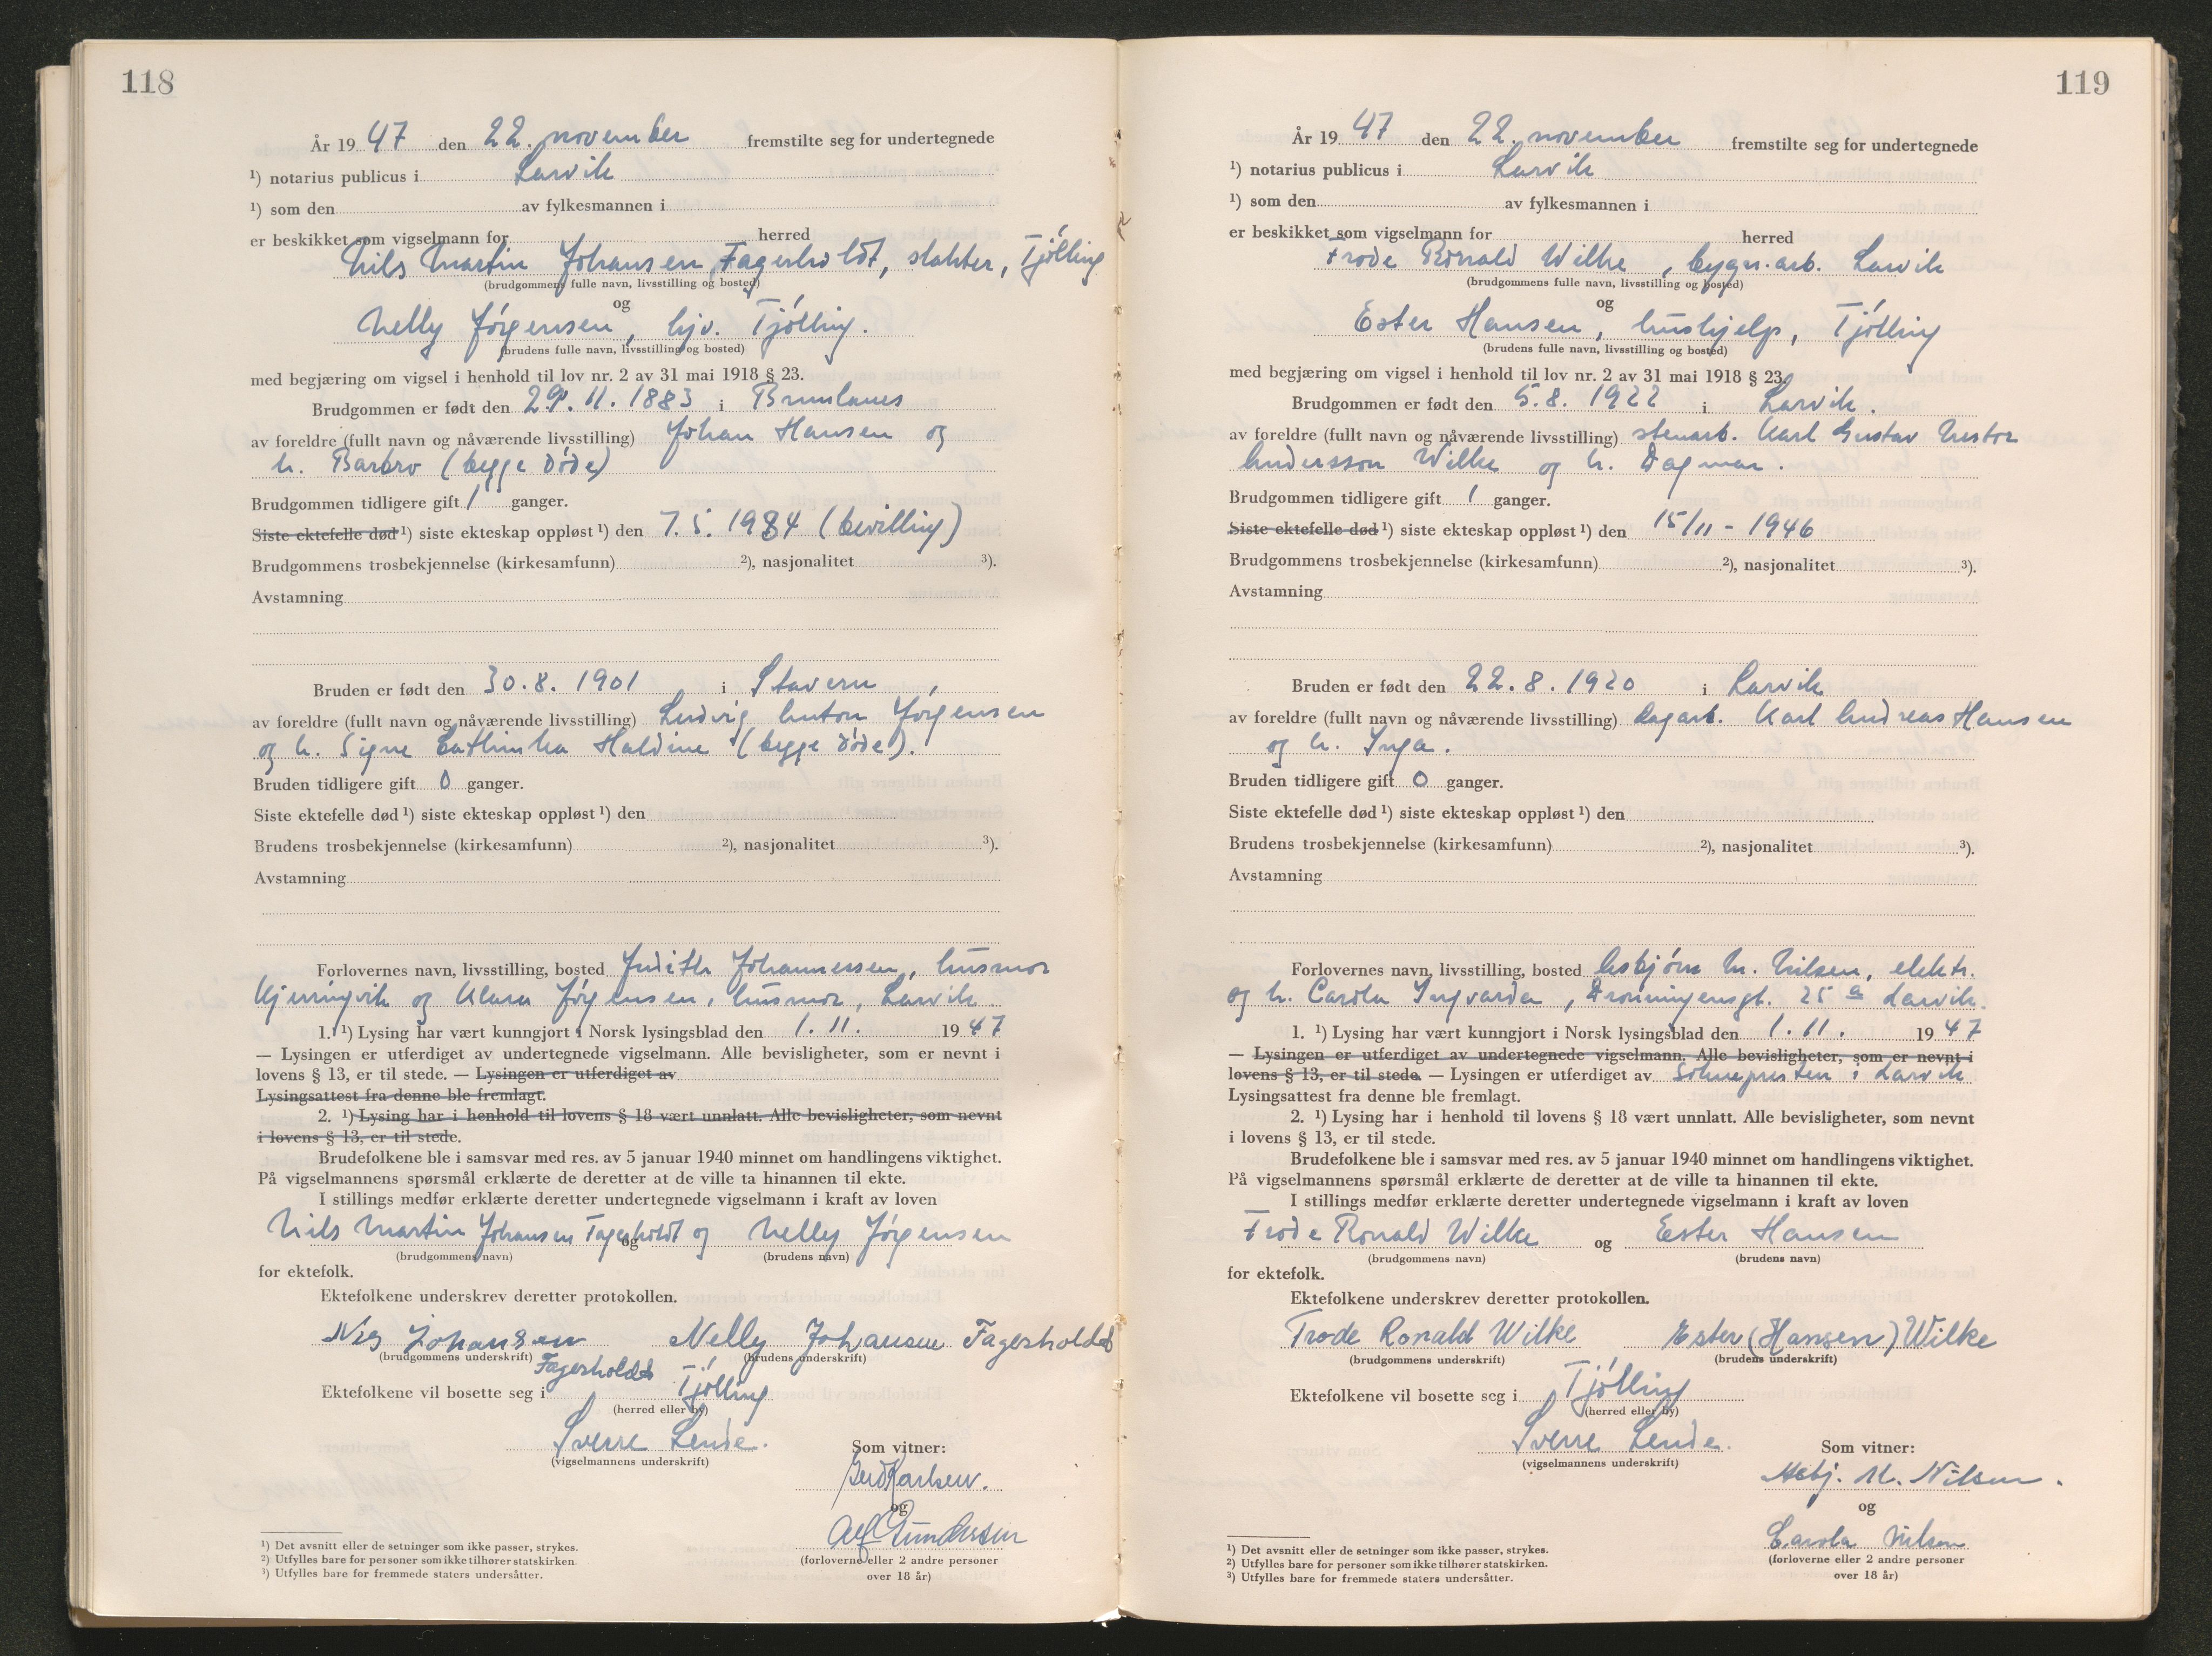 118
År 19 47 den 22. november fremstilte seg for undertegnede
¹) notarius publicus i Larvik
¹) som den av fylkesmannen i
er beskikket som vigselmann for herred
Nils Martin Johansen Fagerholdt, slakter, Tjølling
(brudgommens fulle navn, livsstilling og bosted)
og
Nelly Jørgensen, hjv. Tjølling.
(brudens fulle navn, livsstilling og bosted)
med begjæring om vigsel i henhold til lov nr. 2 av 31 mai 1918 § 23.
Brudgommen er født den 29. 11. 1883 i Brunlanes
av foreldre (fullt navn og nåværende livsstilling) Johan Hansen og
h. Barbro (begge døde)
Brudgommen tidligere gift 1 ganger.
Siste ektefelle død ¹) siste ekteskap oppløst ¹) den 7. 5. 1934 (bevilling)
Brudgommens trosbekjennelse (kirkesamfunn) ²), nasjonalitet ³).
Avstamning
Bruden er født den 30. 8. 1901 i Stavern,
av foreldre (fullt navn og nåværende livsstilling) Ludvig Anton Jørgensen
og h. Signe Cathinka Haldine (begge døde).
Bruden tidligere gift 0 ganger.
Siste ektefelle død ¹) siste ekteskap oppløst ¹) den
Brudens trosbekjennelse (kirkesamfunn) ²), nasjonalitet ³).
Avstamning
Forlovernes navn, livsstilling, bosted Judith Johannessen, husmor
Kjerringvik og Klara Jørgensen, husmor, Larvik.
1. ¹) Lysing har vært kunngjort i Norsk lysingsblad den 1. 11. 19 47
— Lysingen er utferdiget av undertegnede vigselmann. Alle bevisligheter, som er nevnt i
lovens § 13, er til stede. — Lysingen er utferdiget av
Lysingsattest fra denne ble fremlagt.
2. ¹) Lysing har i henhold til lovens § 18 vært unnlatt. Alle bevisligheter, som nevnt
i lovens § 13, er til stede.
Brudefolkene ble i samsvar med res. av 5 januar 1940 minnet om handlingens viktighet.
På vigselmannens spørsmål erklærte de deretter at de ville ta hinannen til ekte.
I stillings medfør erklærte deretter undertegnede vigselmann i kraft av loven
Nils Martin Johansen Fagerholdt og og Nelly Jørgensen
(brudgommens navn) (brudens navn)
for ektefolk.
Ektefolkene underskrev deretter protokollen.
Nils Johansen Nelly Johansen Fagerholdt
(brudgommens underskrift) Fagerholdt (brudens underskrift)
Ektefolkene vil bosette seg i Tjølling
(herred eller by)
Sverre Lende.
(vigselmannens underskrift)
Som vitner:
Gerd Karlsen.
og
Alf Gundersen
(forloverne eller 2 andre personer
over 18 år)
¹) Det avsnitt eller de setninger som ikke passer, strykes.
²) Utfylles bare for personer som ikke tilhører statskirken.
³) Utfylles bare for fremmede staters undersåtter.
119
År 19 47 den 22. november fremstilte seg for undertegnede
¹) notarius publicus i Larvik
¹) som den av fylkesmannen i
er beskikket som vigselmann for herred
Frode Ronald Wilke, bygn.arb. Larvik
(brudgommens fulle navn, livsstilling og bosted)
og
Ester Hansen, hushjelp, Tjølling
(brudens fulle navn, livsstilling og bosted)
med begjæring om vigsel i henhold til lov nr. 2 av 31 mai 1918 § 23.
Brudgommen er født den 5. 8. 1922 i Larvik.
av foreldre (fullt navn og nåværende livsstilling) stenarb. Karl Gustav Nestor
Andersson Wilke og h. Dagmar.
Brudgommen tidligere gift 1 ganger.
Siste ektefelle død ¹) siste ekteskap oppløst ¹) den 15/11 - 1946
Brudgommens trosbekjennelse (kirkesamfunn) ²), nasjonalitet ³).
Avstamning
Bruden er født den 22. 8. 1920 i Larvik
av foreldre (fullt navn og nåværende livsstilling) lagarb. Karl Andreas Hansen
og h. Inga.
Bruden tidligere gift 0 ganger.
Siste ektefelle død ¹) siste ekteskap oppløst ¹) den
Brudens trosbekjennelse (kirkesamfunn) ²), nasjonalitet ³).
Avstamning
Forlovernes navn, livsstilling, bosted Asbjørn M. Nilsen, elektr.
og h. Carola Ingvarda, Dronningensgt. 25 a Larvik.
1. ¹) Lysing har vært kunngjort i Norsk lysingsblad den 1. 11. 19 47
— Lysingen er utferdiget av undertegnede vigselmann. Alle bevisligheter, som er nevnt i
lovens § 13, er til stede. — Lysingen er utferdiget av Soknepresten i Larvik
Lysingsattest fra denne ble fremlagt.
2. ¹) Lysing har i henhold til lovens § 18 vært unnlatt. Alle bevisligheter, som nevnt
i lovens § 13, er til stede.
Brudefolkene ble i samsvar med res. av 5 januar 1940 minnet om handlingens viktighet.
På vigselmannens spørsmål erklærte de deretter at de ville ta hinannen til ekte.
I stillings medfør erklærte deretter undertegnede vigselmann i kraft av loven
Frode Ronald Wilke og Ester Hansen
(brudgommens navn) (brudens navn)
for ektefolk.
Ektefolkene underskrev deretter protokollen.
Frode Ronald Wilke Ester (Hansen) Wilke
(brudgommens underskrift) (brudens underskrift)
Ektefolkene vil bosette seg i Tjølling
(herred eller by)
Sverre Lende.
(vigselmannens underskrift)
Som vitner:
Asbj. M. Nilsen.
og
Carola Nilsen
(forloverne eller 2 andre personer
over 18 år)
¹) Det avsnitt eller de setninger som ikke passer, strykes.
²) Utfylles bare for personer som ikke tilhører statskirken.
³) Utfylles bare for fremmede staters undersåtter.